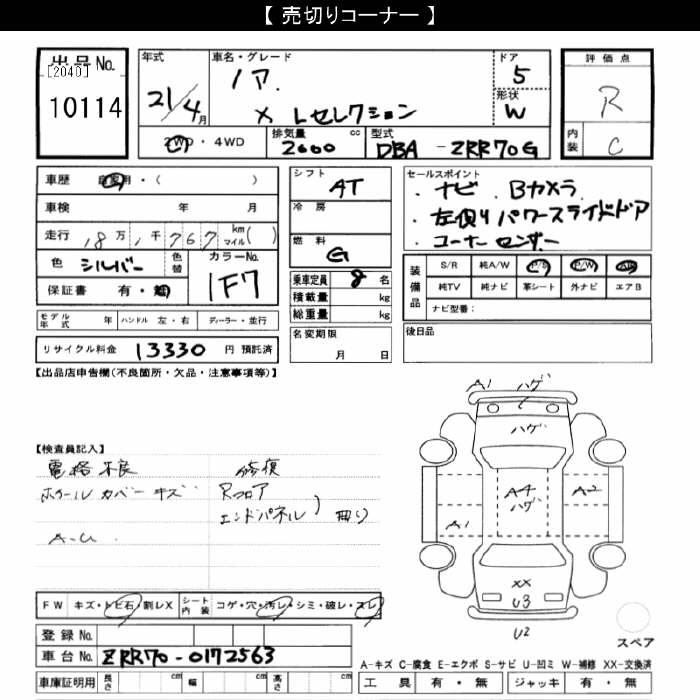 【 売切りコーナー 】
出品No.
[2040]
10114
年式
21/4月
車名・グレード
ノア
X Lセレクション
ドア
5
形状
W
評価点
R
内装
C
2WD・4WD
排気量 cc
2000
型式
DBA-ZRR70G
車歴 自家用・( )
車検 年 月
走行 18万1千767 km マイル( )
色 シルバー 色替
カラーNo.
1F7
保証書 有・無
モデル年式 年 ハンドル 左・右 ディーラー・並行
リサイクル料金 13330 円 預託済
シフト
AT
冷房
燃料
G
乗車定員 8 名
積載量 kg
総重量 kg
名変期限
月 日
セールスポイント
・ナビ ・Bカメラ
・左側パワースライドドア
・コーナーセンサー
装備品
S/R 純A/W P/S P/W A/B
純TV 純ナビ 革シート 外ナビ エアB
ナビ型番:
後日品
【出品店申告欄(不良箇所・欠品・注意事項等)】
【検査員記入】
電格 不良
ホイールカバー キズ
A-U
修復
Rフロア
エンドパネル ) 曲り
A1 ハゲ
ハゲ
A4
ハゲ
A2
A1
XX
U3
U2
スペア
FW キズ・トビ石・割レX シート内装 コゲ・穴・汚レ・シミ・破レ・スレ
登録No.
車台No. ZRR70-0172563
車庫証明用 長さ cm 幅 cm 高さ cm
A-キズ C-腐食 E-エクボ S-サビ U-凹ミ W-補修 XX-交換済
工具 有・無 ジャッキ 有・無